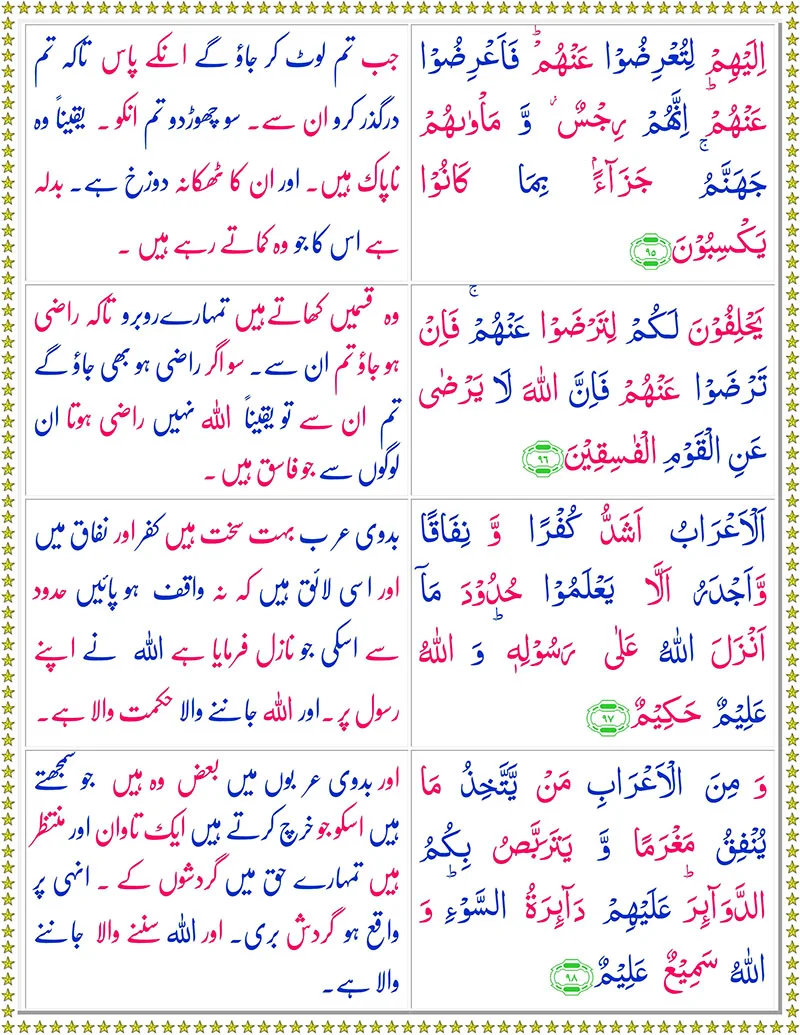 اِلَيۡهِمۡ لِتُعۡرِضُوۡا عَنۡهُمۡ ؕ فَاَعۡرِضُوۡا
عَنۡهُمۡ ؕ اِنَّهُمۡ رِجۡسٌ ۫ وَّ مَاۡوٰٮهُمۡ
جَهَـنَّمُ ۚ جَزَآءًۢ بِمَا كَانُوۡا
يَكۡسِبُوۡنَ ﴿۹۵﴾
جب تم لوٹ کر جاؤ گے انکے پاس تاکہ تم
درگذر کرو ان سے۔ سو چھوڑدو تم انکو ۔ یقیناً وہ
ناپاک ہیں۔ اور ان کا ٹھکانہ دوزخ ہے۔ بدلہ
ہے اس کا جو وہ کماتے رہے ہیں ۔
يَحۡلِفُوۡنَ لَـكُمۡ لِتَرۡضَوۡا عَنۡهُمۡ ۚ فَاِنۡ
تَرۡضَوۡا عَنۡهُمۡ فَاِنَّ اللّٰهَ لَا يَرۡضٰى
عَنِ الۡقَوۡمِ الۡفٰسِقِيۡنَ ﴿۹۶﴾
وہ قسمیں کھاتے ہیں تمہارے روبرو تاکہ راضی
ہو جاؤ تم ان سے۔ سو اگر راضی ہو بھی جاؤ گے
تم ان سے تو یقیناً اللہ نہیں راضی ہوتا ان
لوگوں سے جو فاسق ہیں ۔
اَلۡاَعۡرَابُ اَشَدُّ كُفۡرًا وَّ نِفَاقًا
وَّاَجۡدَرُ اَلَّا يَعۡلَمُوۡا حُدُوۡدَ مَاۤ
اَنۡزَلَ اللّٰهُ عَلٰى رَسُوۡلِهٖ ؕ وَ اللّٰهُ
عَلِيۡمٌ حَكِيۡمٌ ﴿۹۷﴾
بدوی عرب بہت سخت ہیں کفر اور نفاق میں
اور اسی لائق ہیں کہ نہ واقف ہو پائیں حدود
سے اسکی جو نازل فرمایا ہے اللہ نے اپنے
رسول پر ۔ اور اللہ جاننے والا حکمت والا ہے۔
وَ مِنَ الۡاَعۡرَابِ مَنۡ يَّتَّخِذُ مَا
يُنۡفِقُ مَغۡرَمًا وَّ يَتَرَبَّصُ بِكُمُ
الدَّوَآٮِٕرَ ؕ عَلَيۡهِمۡ دَآٮِٕرَةُ السَّوۡءِ ؕ وَ
اللّٰهُ سَمِيۡعٌ عَلِيۡمٌ ﴿۹۸﴾
اور بدوی عربوں میں بعض وہ ہیں جو سمجھتے
ہیں اسکو جو خرچ کرتے ہیں ایک تاوان اور منتظر
ہیں تمہارے حق میں گردشوں کے ۔ انہی پر
واقع ہو گردش بری۔ اور اللہ سننے والا جاننے
والا ہے۔